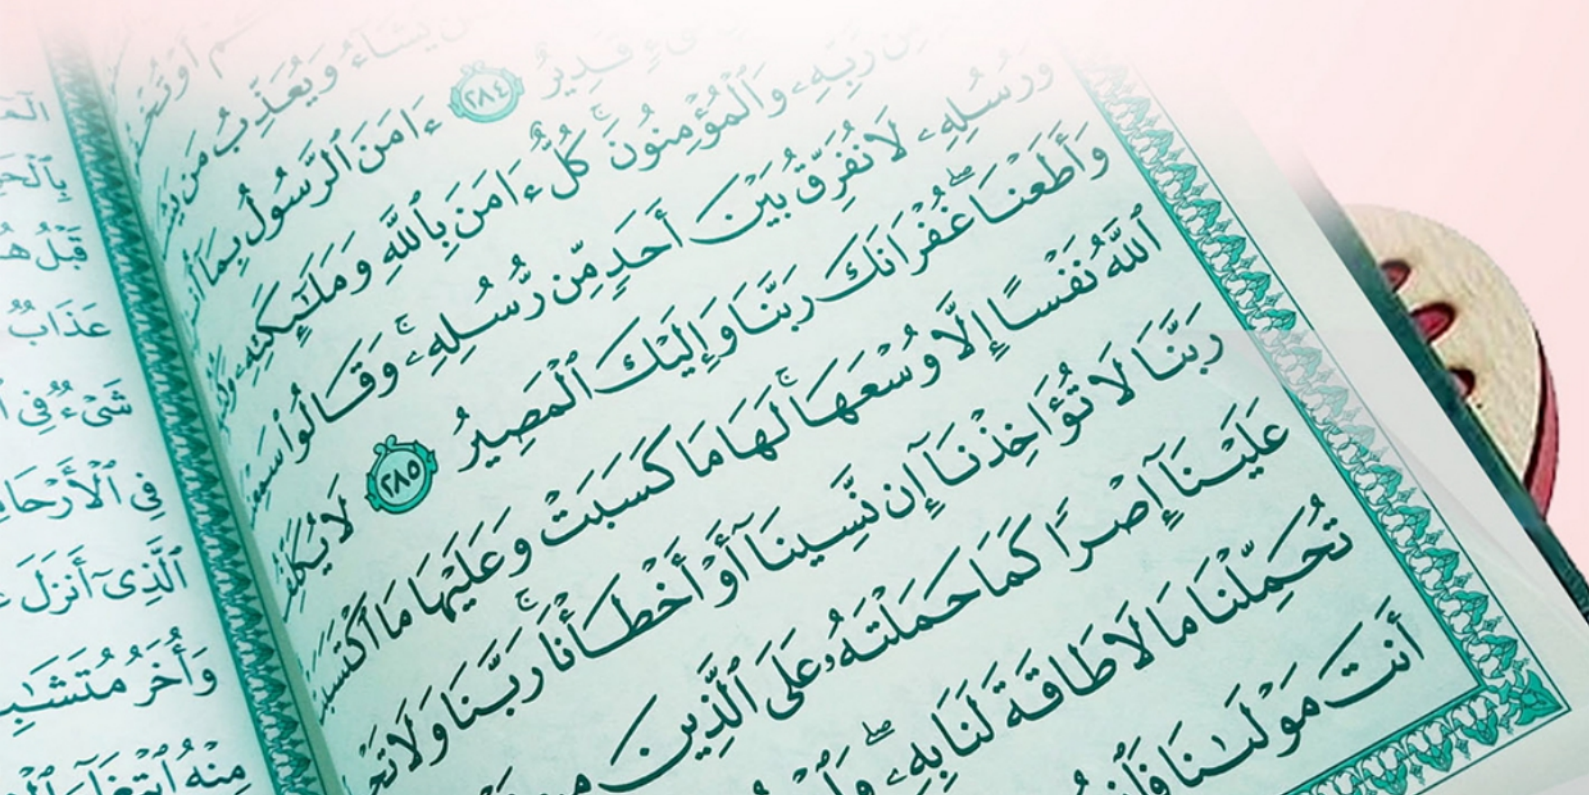 وَيُعَذِّبُ مَن
قَدِيرٌ ٢٨٤ ءَامَنَ ٱلرَّسُولُ بِمَآ
مِن رَّبِّهِۦ وَٱلْمُؤْمِنُونَ ۚ كُلٌّ ءَامَنَ بِٱللَّهِ وَمَلَٰٓئِكَتِهِۦ
وَرُسُلِهِۦ لَا نُفَرِّقُ بَيْنَ أَحَدٍ مِّن رُّسُلِهِۦ ۚ وَقَالُوا۟
وَأَطَعْنَا ۖ غُفْرَانَكَ رَبَّنَا وَإِلَيْكَ ٱلْمَصِيرُ ٢٨٥ لَا يُكَلِّفُ
ٱللَّهُ نَفْسًا إِلَّا وُسْعَهَا ۚ لَهَا مَا كَسَبَتْ وَعَلَيْهَا مَا
رَبَّنَا لَا تُؤَاخِذْنَآ إِن نَّسِينَآ أَوْ أَخْطَأْنَا ۚ رَبَّنَا وَلَا
عَلَيْنَآ إِصْرًا كَمَا حَمَلْتَهُۥ عَلَى ٱلَّذِينَ
تُحَمِّلْنَا مَا لَا طَاقَةَ لَنَا بِهِۦ ۖ
أَنتَ مَوْلَىٰنَا
عَذَابٌ
شَىْءٌ فِى
فِى
ٱلَّذِىٓ أَنزَلَ
وَأُخَرُ
مِنْهُ ٱبْتِغَآءَ